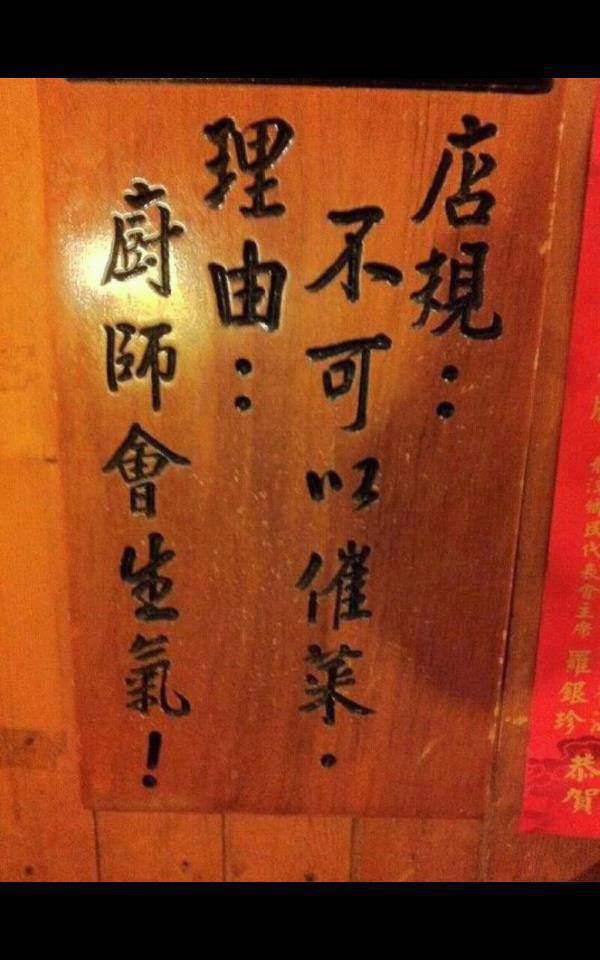 店規：
不可以催菜.
理由：
廚師會生氣！
代表會主席
羅銀珍
恭賀